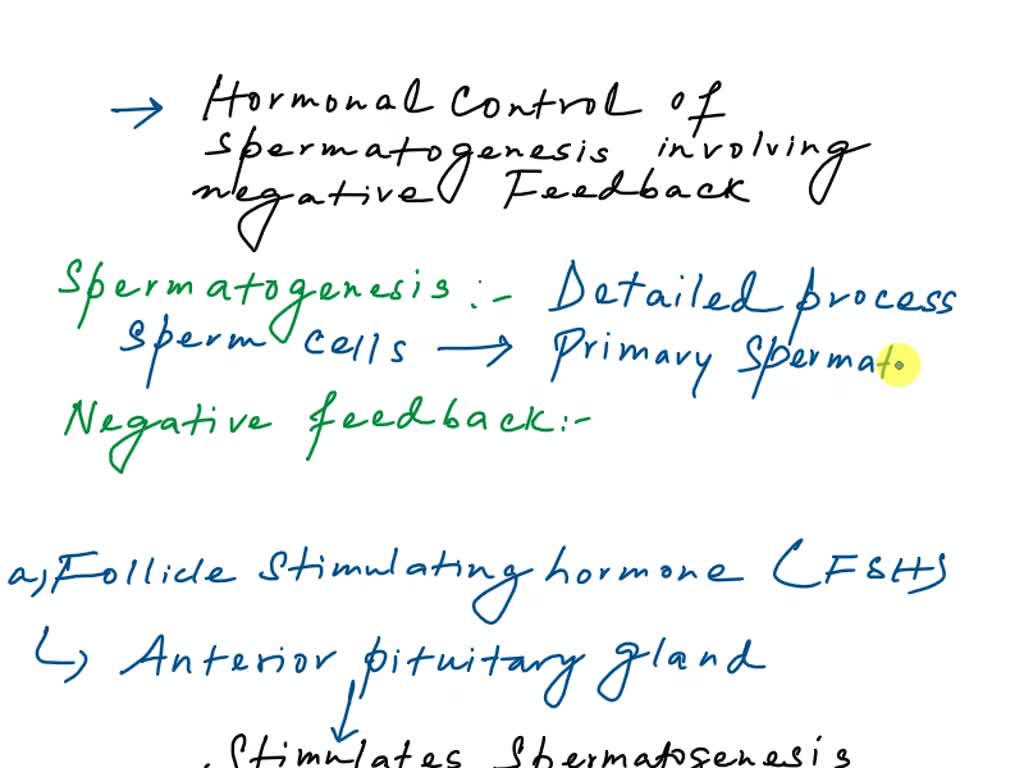 → Hormonal Control of
spermatogenesis involving
negative Feedback
Spermatogenesis :- Detailed process
sperm cells → Primary Spermat
Negative feedback :-
a, Follicle Stimulating hormone (FSH)
↳ Anterior pituitary gland
. Stimulates Spermatogenesis